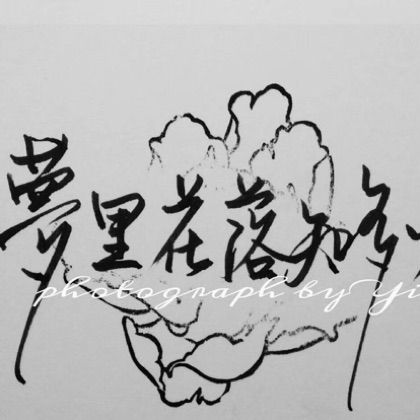 夢里花落知多
photograph by Yi